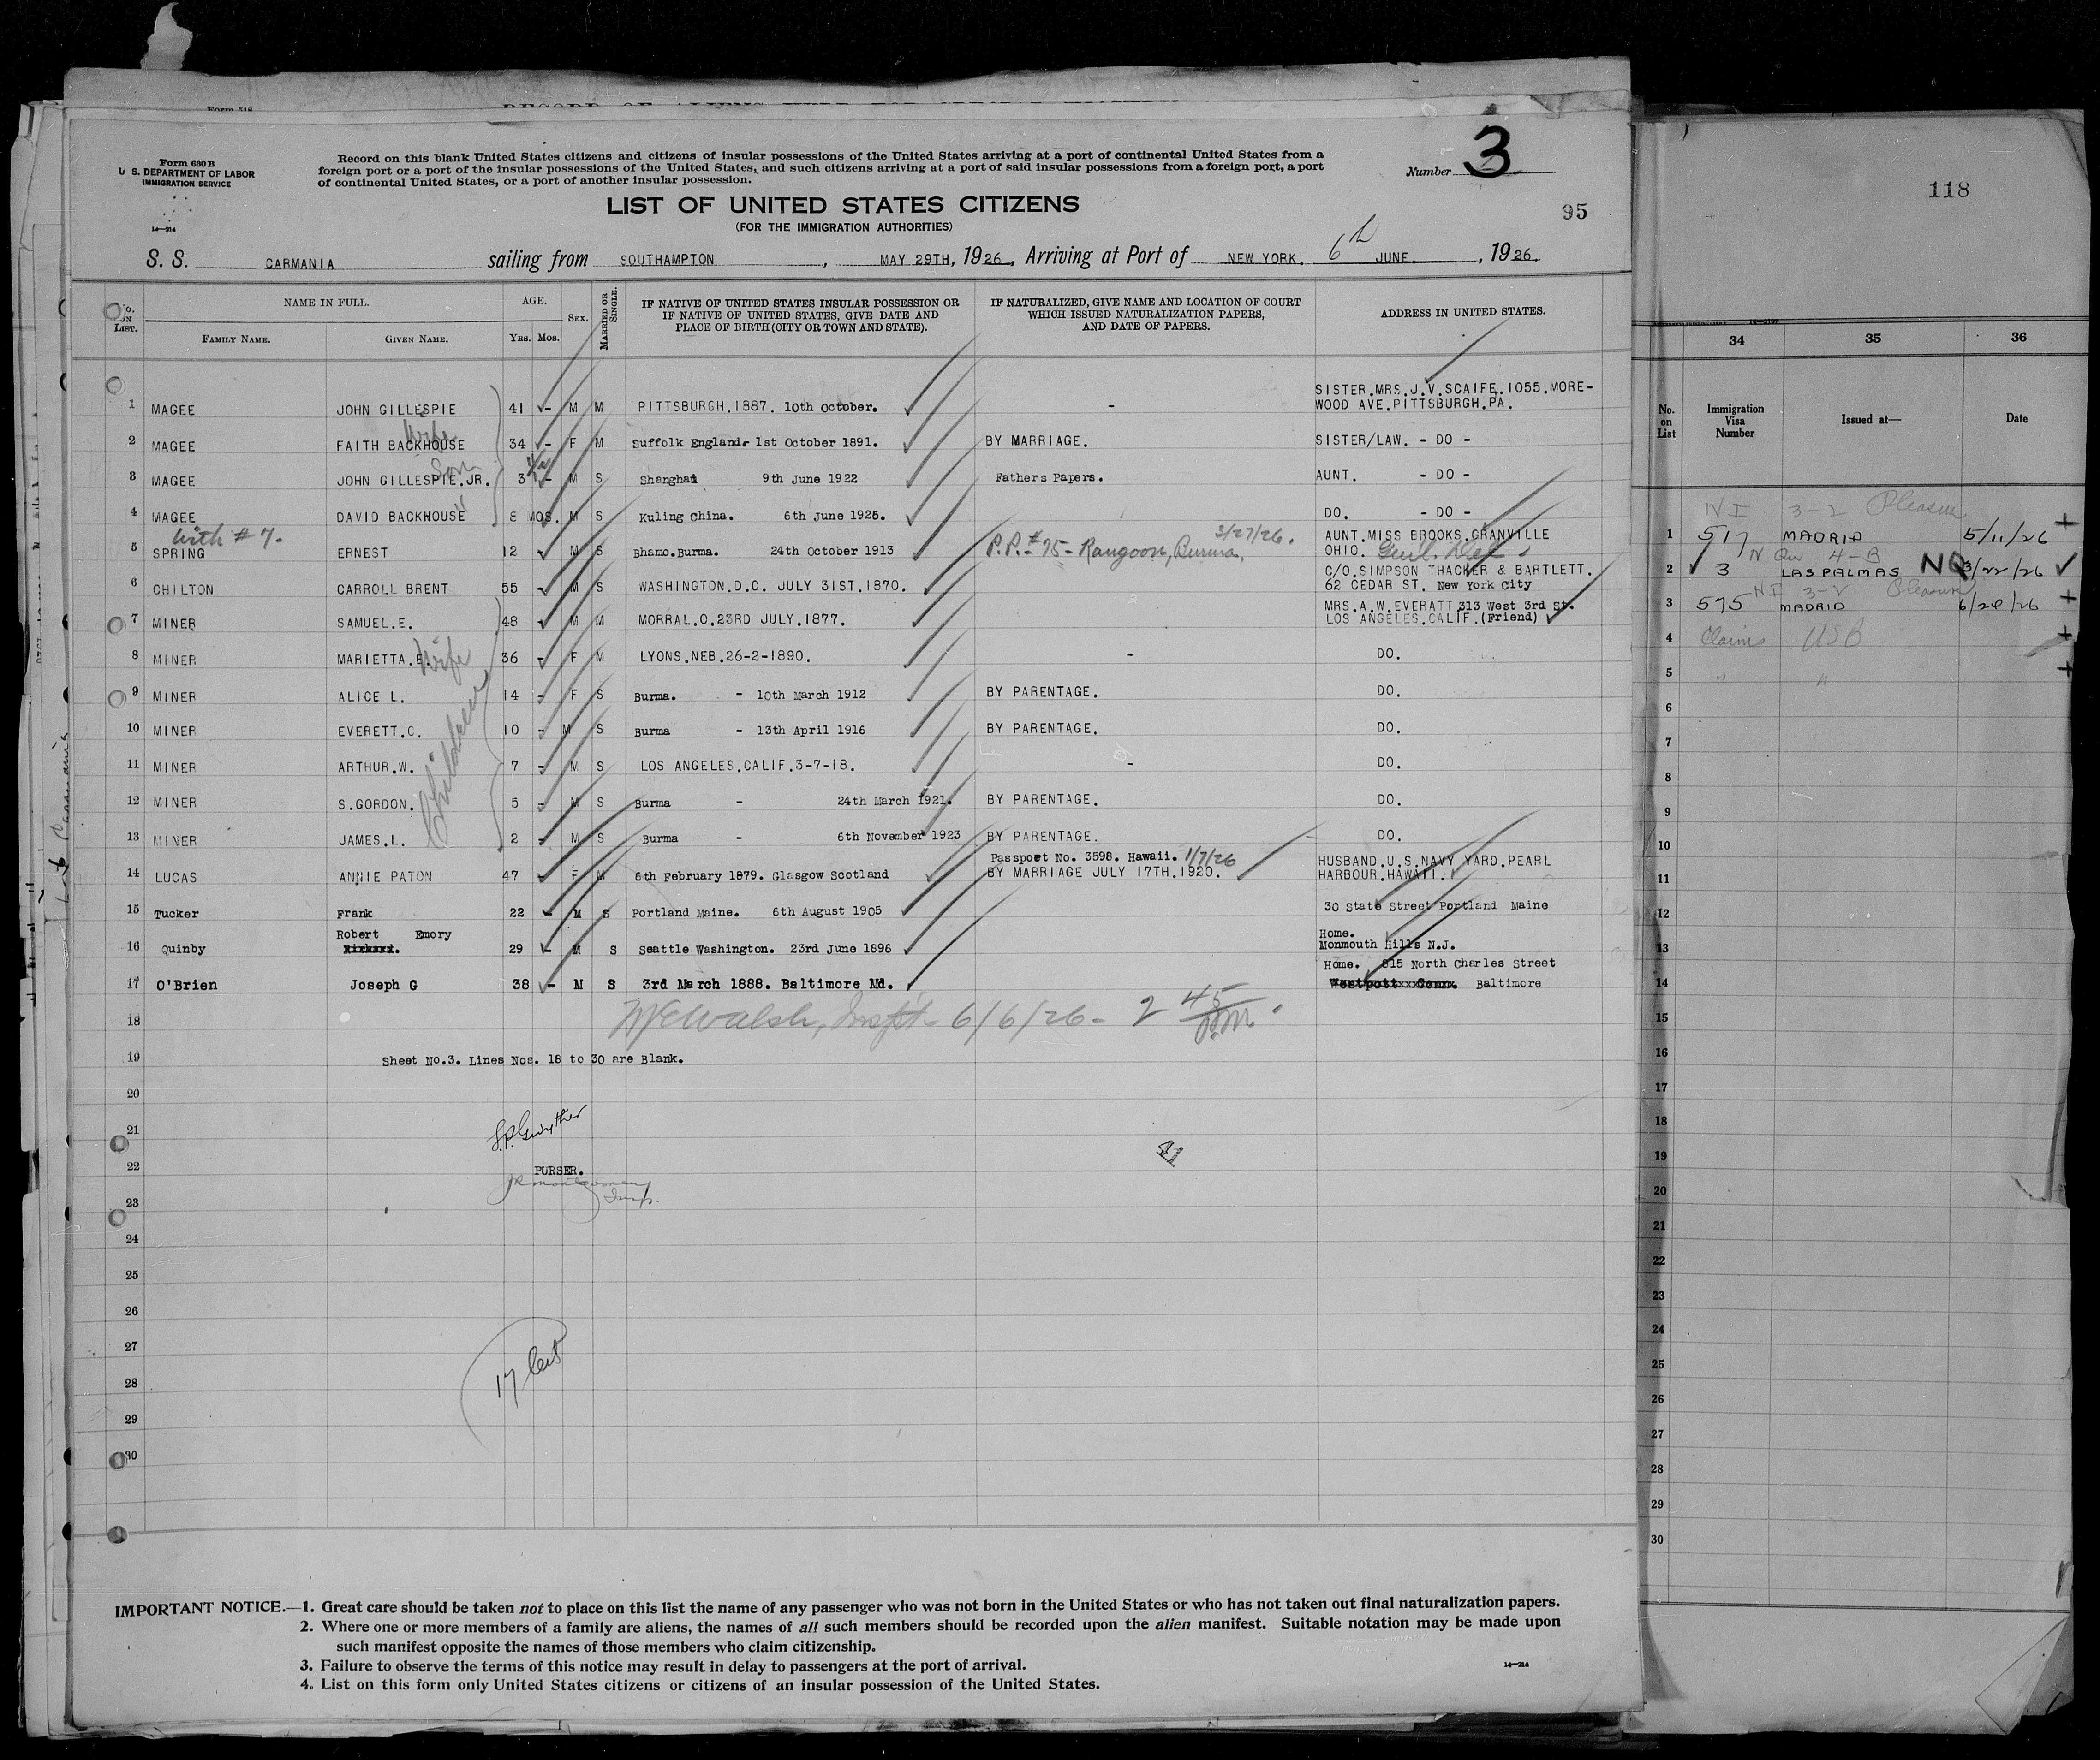 Form 630 B
U. S. DEPARTMENT OF LABOR
IMMIGRATION SERVICE
14—214
Record on this blank United States citizens and citizens of insular possessions of the United States arriving at a port of continental United States from a
foreign port or a port of the insular possessions of the United States, and such citizens arriving at a port of said insular possessions from a foreign port, a port
of continental United States, or a port of another insular possession.
Number 3
LIST OF UNITED STATES CITIZENS
(FOR THE IMMIGRATION AUTHORITIES)
95
S. S. CARMANIA sailing from SOUTHAMPTON, MAY 29TH, 1926, Arriving at Port of NEW YORK. 6th JUNE, 1926.
No. ON LIST.
NAME IN FULL.
FAMILY NAME.
GIVEN NAME.
AGE.
YRS. MOS.
SEX.
MARRIED OR SINGLE.
IF NATIVE OF UNITED STATES INSULAR POSSESSION OR
IF NATIVE OF UNITED STATES, GIVE DATE AND
PLACE OF BIRTH (CITY OR TOWN AND STATE).
IF NATURALIZED, GIVE NAME AND LOCATION OF COURT
WHICH ISSUED NATURALIZATION PAPERS,
AND DATE OF PAPERS.
ADDRESS IN UNITED STATES.
SISTER.MRS.J.V.SCAIFE.1055.MORE-
1 MAGEE JOHN GILLESPIE 41 - M M PITTSBURGH.1887. 10th October. - WOOD AVE.PITTSBURGH.PA.
Wife
2 MAGEE FAITH BACKHOUSE 34 - F M Suffolk England. 1st October 1891. BY MARRIAGE. SISTER/LAW. - DO -
Son
3 MAGEE JOHN GILLESPIE.JR. 3 - M S Shanghai 9th June 1922 Fathers Papers. AUNT. - DO -
"
4 MAGEE DAVID BACKHOUSE 8 MOS. M S Kuling China. 6th June 1925. DO. - DO -
With # 7. 3/27/26. AUNT.MISS BROOKS.GRANVILLE
5 SPRING ERNEST 12 - M S Bhamo.Burma. 24th October 1913 P.P. # 75 - Rangoon, Burma, OHIO.
C/O.SIMPSON THACHER & BARTLETT.
6 CHILTON CARROLL BRENT 55 - M S WASHINGTON.D.C. JULY 31ST.1870. 62 CEDAR ST. New York City
MRS.A.W.EVERATT 313 West 3rd St.
7 MINER SAMUEL.E. 48 - M M MORRAL.O.23RD JULY.1877. LOS ANGELES.CALIF.(Friend)
8 MINER MARIETTA.B. Wife 36 - F M LYONS.NEB.26-2-1890. - DO.
Children
9 MINER ALICE L. 14 - F S Burma. - 10th March 1912 BY PARENTAGE. DO.
10 MINER EVERETT.C. 10 - M S Burma - 13th April 1916 BY PARENTAGE. DO.
11 MINER ARTHUR.W. 7 - M S LOS ANGELES.CALIF.3-7-18. - DO.
12 MINER S.GORDON. 5 - M S Burma - 24th March 1921. BY PARENTAGE. DO.
13 MINER JAMES.L. 2 - M S Burma - 6th November 1923 BY PARENTAGE. DO.
Passport No. 3598. Hawaii. 1/7/26 HUSBAND.U.S.NAVY YARD.PEARL
14 LUCAS ANNIE PATON 47 - F M 6th February 1879. Glasgow Scotland BY MARRIAGE JULY 17TH.1920. HARBOUR.HAWAII.
15 Tucker Frank 22 - M S Portland Maine. 6th August 1905 30 State Street Portland Maine
Robert Emory Home.
16 Quinby Richard. 29 - M S Seattle Washington. 23rd June 1896 Monmouth Hills N.J.
Home. 815 North Charles Street
17 O'Brien Joseph G 38 - M S 3rd March 1888. Baltimore Md. Westport Conn. Baltimore
18 Walsh, Inspt - 6/6/26 - 2 45 P.M.
19 Sheet No.3. Lines Nos. 18 to 30 are Blank.
20
21
22 PURSER.
Insp.
23
24
25
26
27
28
29
30
IMPORTANT NOTICE.—1. Great care should be taken not to place on this list the name of any passenger who was not born in the United States or who has not taken out final naturalization papers.
2. Where one or more members of a family are aliens, the names of all such members should be recorded upon the alien manifest. Suitable notation may be made upon
such manifest opposite the names of those members who claim citizenship.
3. Failure to observe the terms of this notice may result in delay to passengers at the port of arrival.
4. List on this form only United States citizens or citizens of an insular possession of the United States.
14—214
118
34 35 36
No. on List
Immigration Visa Number
Issued at—
Date
NI 3-2 Pleasure
1 517 MADRID 5/11/26 +
4-B
2 3 LAS PALMAS NQ 3/22/26
NI 3-2 Pleasure
3 575 MADRID +
4 Claims USB +
5 " " +
6
7
8
9
10
11
12
13
14
15
16
17
18
19
20
21
22
23
24
25
26
27
28
29
30